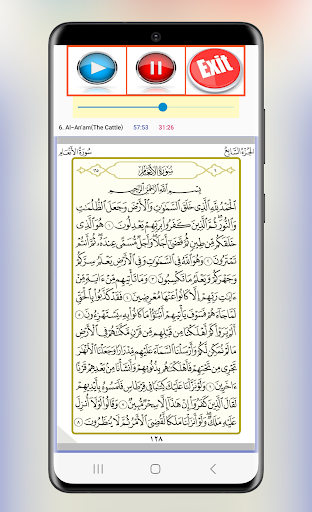 Exit
6. Al-An'am(The Cattle) 57:53 31:26
الجزء السابع سورة الأنعام
سورة الأنعام
بِسْمِ ٱللَّهِ ٱلرَّحْمَٰنِ ٱلرَّحِيمِ
ٱلْحَمْدُ لِلَّهِ ٱلَّذِى خَلَقَ ٱلسَّمَٰوَٰتِ وَٱلْأَرْضَ وَجَعَلَ ٱلظُّلُمَٰتِ
وَٱلنُّورَ ثُمَّ ٱلَّذِينَ كَفَرُوا۟ بِرَبِّهِمْ يَعْدِلُونَ ١ هُوَ ٱلَّذِى
خَلَقَكُم مِّن طِينٍ ثُمَّ قَضَىٰٓ أَجَلًا وَأَجَلٌ مُّسَمًّى عِندَهُۥ ثُمَّ أَنتُمْ
تَمْتَرُونَ ٢ وَهُوَ ٱللَّهُ فِى ٱلسَّمَٰوَٰتِ وَفِى ٱلْأَرْضِ يَعْلَمُ سِرَّكُمْ
وَجَهْرَكُمْ وَيَعْلَمُ مَا تَكْسِبُونَ ٣ وَمَا تَأْتِيهِم مِّنْ ءَايَةٍ مِّنْ
ءَايَٰتِ رَبِّهِمْ إِلَّا كَانُوا۟ عَنْهَا مُعْرِضِينَ ٤ فَقَدْ كَذَّبُوا۟ بِٱلْحَقِّ
لَمَّا جَآءَهُمْ فَسَوْفَ يَأْتِيهِمْ أَنۢبَٰٓؤُا۟ مَا كَانُوا۟ بِهِۦ يَسْتَهْزِءُونَ ٥
أَلَمْ يَرَوْا۟ كَمْ أَهْلَكْنَا مِن قَبْلِهِم مِّن قَرْنٍ مَّكَّنَّٰهُمْ فِى ٱلْأَرْضِ
مَا لَمْ نُمَكِّن لَّكُمْ وَأَرْسَلْنَا ٱلسَّمَآءَ عَلَيْهِم مِّدْرَارًا وَجَعَلْنَا ٱلْأَنْهَٰرَ
تَجْرِى مِن تَحْتِهِمْ فَأَهْلَكْنَٰهُم بِذُنُوبِهِمْ وَأَنشَأْنَا مِنۢ بَعْدِهِمْ قَرْنًا
ءَاخَرِينَ ٦ وَلَوْ نَزَّلْنَا عَلَيْكَ كِتَٰبًا فِى قِرْطَاسٍ فَلَمَسُوهُ بِأَيْدِيهِمْ
لَقَالَ ٱلَّذِينَ كَفَرُوٓا۟ إِنْ هَٰذَآ إِلَّا سِحْرٌ مُّبِينٌ ٧ وَقَالُوا۟ لَوْلَآ أُنزِلَ
عَلَيْهِ مَلَكٌ وَلَوْ أَنزَلْنَا مَلَكًا لَّقُضِىَ ٱلْأَمْرُ ثُمَّ لَا يُنظَرُونَ ٨
١٢٨